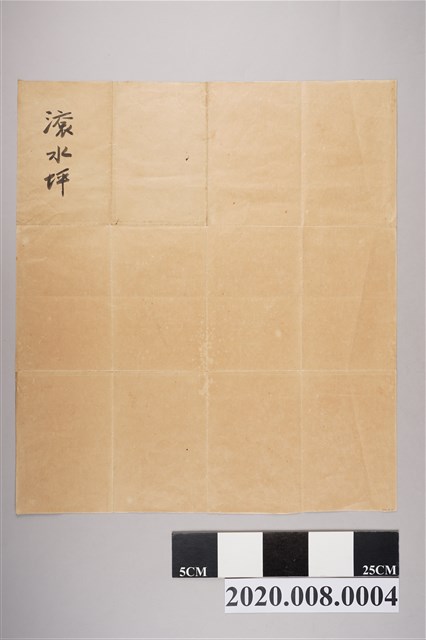 滾水坪
5CM
25CM
2020.008.0004